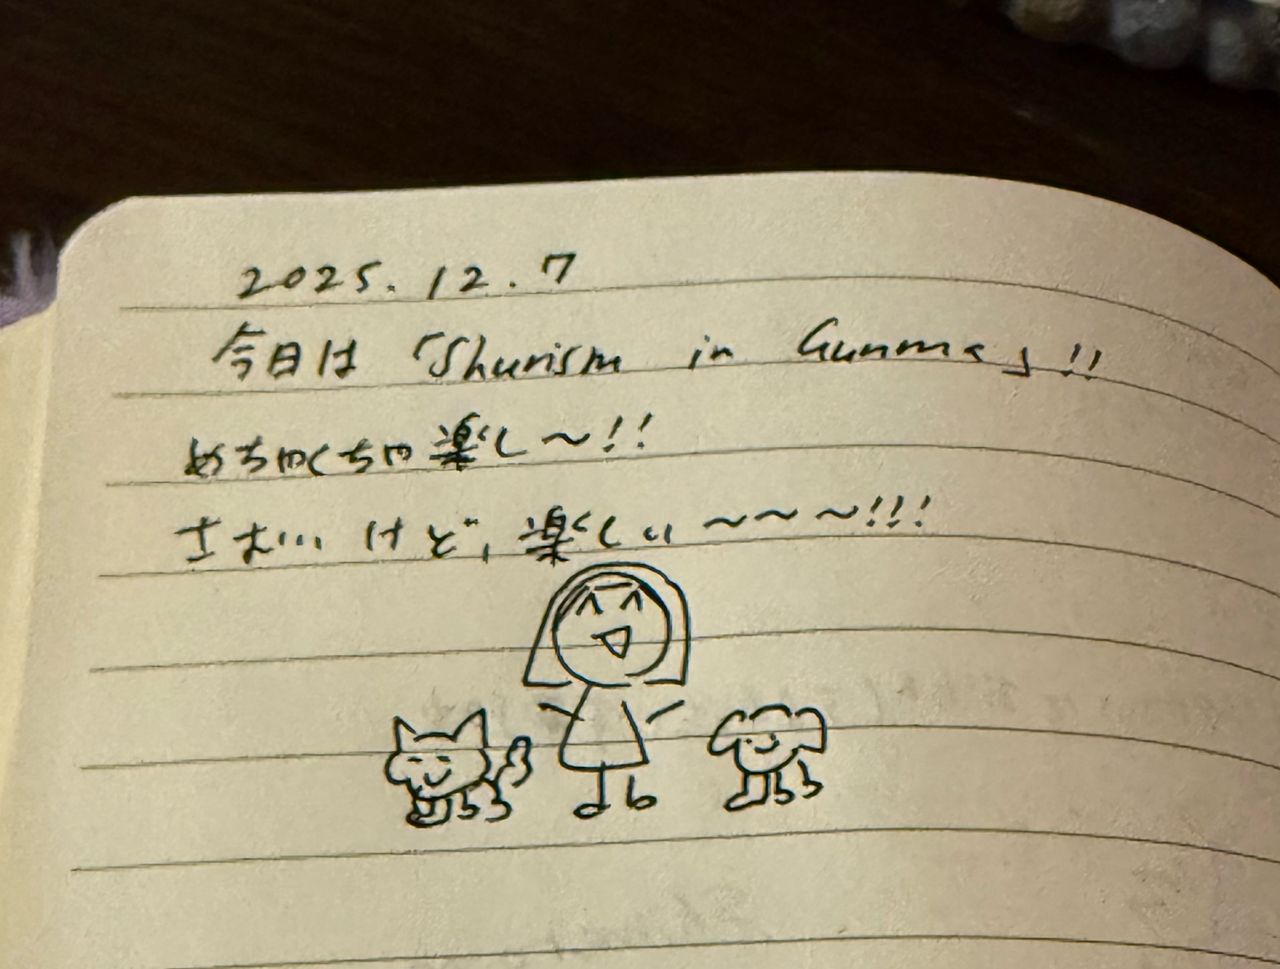 2025.12.7
今日は「Shurism in Gunma」!!
めちゃくちゃ楽し〜!!
さむいけど、楽しい〜〜〜!!!